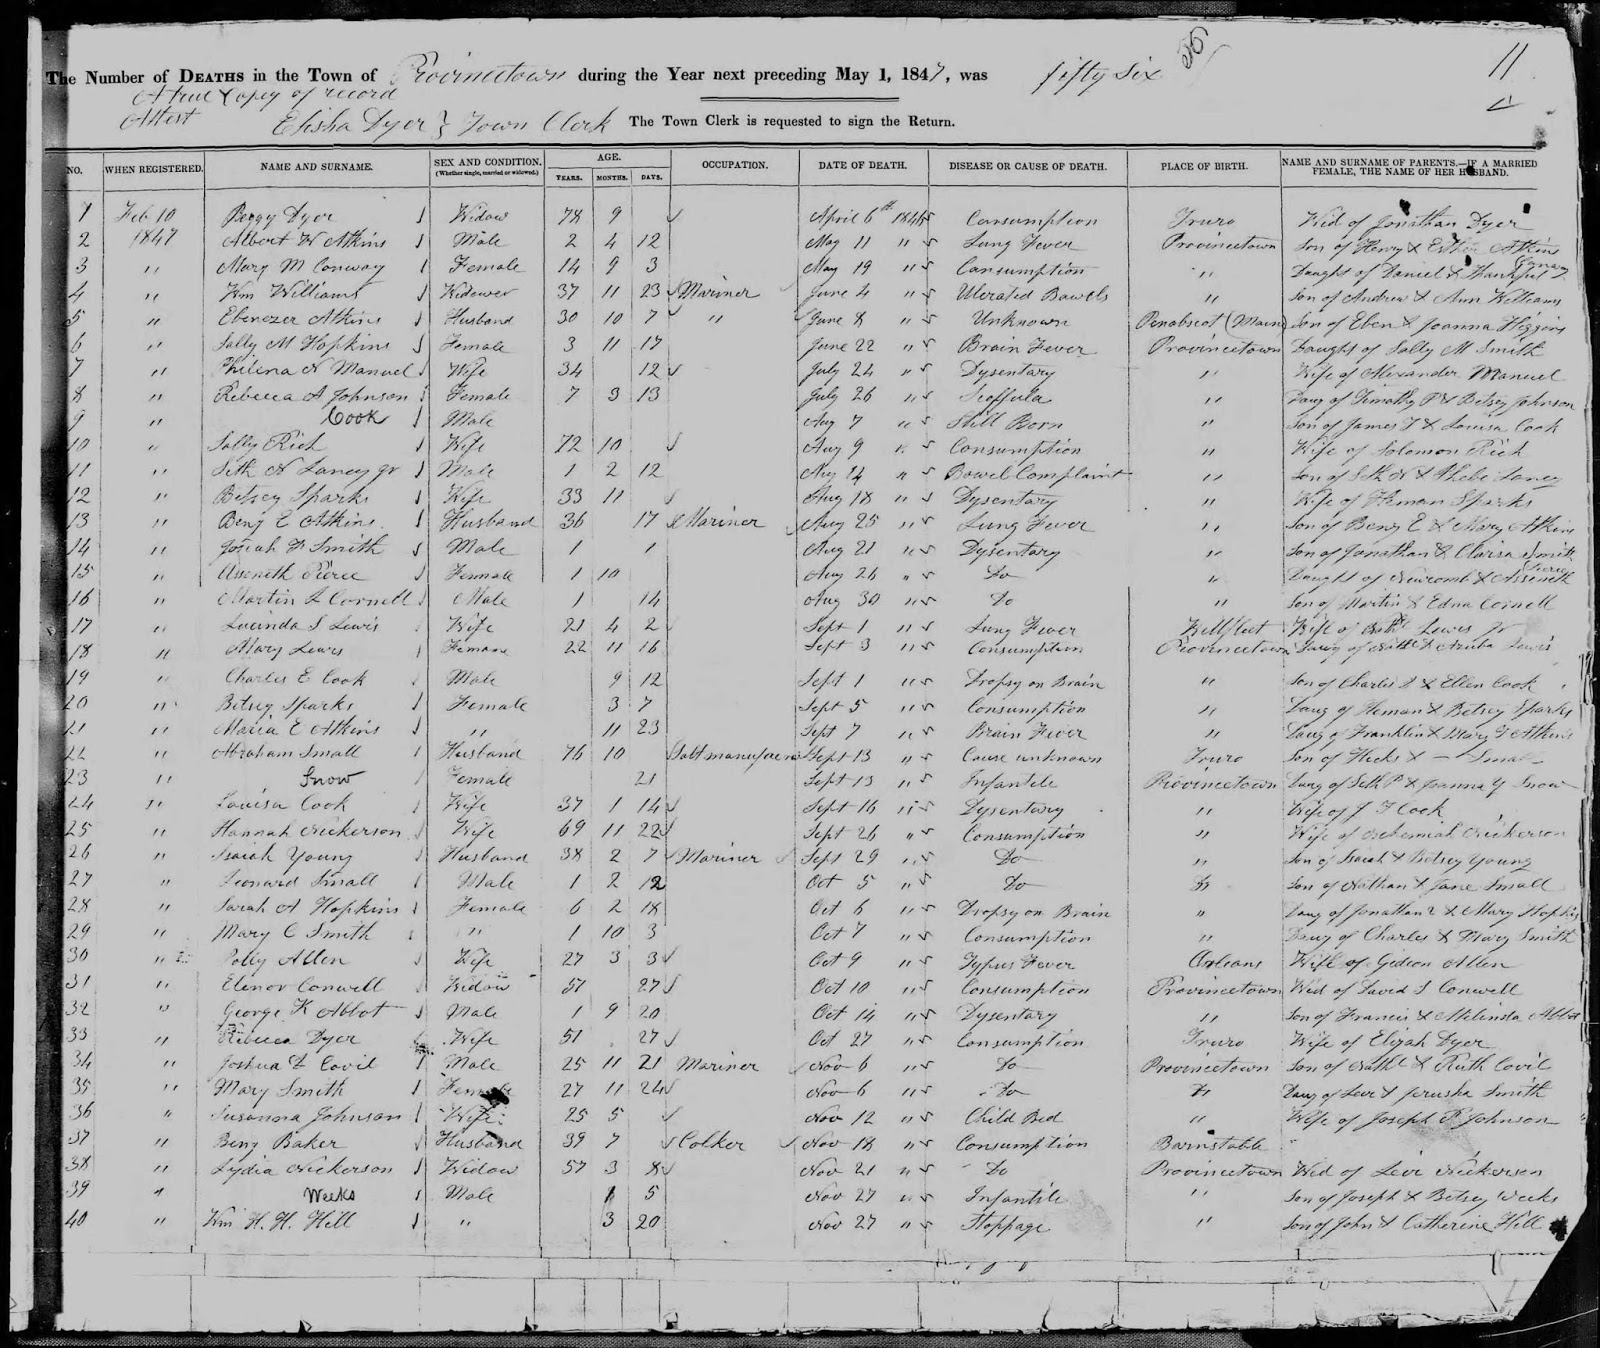 11
The Number of DEATHS in the Town of Provincetown during the Year next preceding May 1, 1847, was fifty six
A true copy of record
Attest Elisha Dyer } Town Clerk The Town Clerk is requested to sign the Return.
NO. WHEN REGISTERED. NAME AND SURNAME. SEX AND CONDITION. (Whether single, married or widowed.) AGE. YEARS. MONTHS. DAYS. OCCUPATION. DATE OF DEATH. DISEASE OR CAUSE OF DEATH. PLACE OF BIRTH. NAME AND SURNAME OF PARENTS.—IF A MARRIED FEMALE, THE NAME OF HER HUSBAND.
1 Feb 10 Peggy Dyer Widow 78 9 April 6th 1846 Consumption Truro Wid of Jonathan Dyer
2 1847 Albert W Atkins Male 2 4 12 May 11 " Lung Fever Provincetown Son of Henry & Esther Atkins
3 " Mary M Conway Female 14 9 3 May 19 " Consumption " Daught of Daniel & Thankful Conway
4 " Wm Williams Widower 37 11 23 Mariner June 4 " Ulcrated Bowels " Son of Andrew & Ann Williams
5 " Ebenezer Atkins Husband 30 10 7 " June 8 " Unknown Penobscot (Maine) Son of Eben & Joanna Higgins
6 " Sally M Hopkins Female 3 11 17 June 22 " Brain Fever Provincetown Daught of Sally M Smith
7 " Philena N Manuel Wife 34 12 July 24 " Dysentary " Wife of Alexander Manuel
8 " Rebecca A Johnson Female 7 3 13 July 26 " Scoffula " Daug of Timothy P & Betsey Johnson
9 " Cook Male Aug 7 " Still Born " Son of James T & Louisa Cook
10 " Sally Rich Wife 72 10 Aug 9 " Consumption " Wife of Solomon Rich
11 " Seth N Lancy Jr Male 1 2 12 Aug 14 " Bowel Complaint " Son of Seth N & Phebe Lancy
12 " Betsey Sparks Wife 33 11 Aug 18 " Dysentary " Wife of Heman Sparks
13 " Benj E Atkins Husband 36 17 Mariner Aug 25 " Lung Fever " Son of Benj E & Mary Atkins
14 " Josiah F Smith Male 1 1 Aug 21 " Dysentary " Son of Jonathan & Clarisa Smith
15 " Asseneth Pierce Female 1 10 Aug 26 " Do " Daught of Newcomb & Asseneth Pierce
16 " Martin L Cornell Male 1 14 Aug 30 " Do " Son of Martin & Edna Cornell
17 " Lucinda S Lewis Wife 21 4 2 Sept 1 " Lung Fever Wellfleet Wife of Nathl Lewis Jr
18 " Mary Lewis Female 22 11 16 Sept 3 " Consumption Provincetown Daug of Nathl & Azuba Lewis
19 " Charles E Cook Male 9 12 Sept 1 " Dropsy on Brain " Son of Charles & Ellen Cook
20 " Betsey Sparks Female 3 7 Sept 5 " Consumption " Daug of Heman & Betsey Sparks
21 " Maria E Atkins " 11 23 Sept 7 " Brain Fever " Daug of Franklin & Mary T Atkins
22 " Abraham Small Husband 76 10 Salt manufac Sept 13 " Cause unknown Truro Son of Hicks & — Small
23 " Snow Female 21 Sept 13 " Infantile Provincetown Daug of Seth P & Joanna Y Snow
24 " Louisa Cook Wife 37 1 14 Sept 16 " Dysentary " Wife of J T Cook
25 " Hannah Nickerson Wife 69 11 22 Sept 26 " Consumption " Wife of Nehemiah Nickerson
26 " Isaiah Young Husband 38 2 7 Mariner Sept 29 " Do " Son of Isaiah & Betsey Young
27 " Leonard Small Male 1 2 12 Oct 5 " Do Do Son of Nathan & Jane Small
28 " Sarah A Hopkins Female 6 2 18 Oct 6 " Dropsy on Brain " Daug of Jonathan & Mary Hopkins
29 " Mary C Smith " 1 10 3 Oct 7 " Consumption " Daug of Charles & Mary Smith
30 " Polly Allen Wife 27 3 3 Oct 9 " Typus Fever Orleans Wife of Gideon Allen
31 " Elenor Conwell Widow 51 27 Oct 10 " Consumption Provincetown Wid of David S Conwell
32 " George K Abbot Male 1 9 20 Oct 14 " Dysentary " Son of Francis & Melinda Abbot
33 " Rebecca Dyer Wife 51 27 Oct 27 " Consumption Truro Wife of Elijah Dyer
34 " Joshua F Covil Male 25 11 21 Mariner Nov 6 " Do Provincetown Son of Nathl & Ruth Covil
35 " Mary Smith Female 27 11 24 Nov 6 " Do Do Daug of Levi & Jerusha Smith
36 " Susanna Johnson Wife 25 5 Nov 12 " Child Bed " Wife of Joseph P Johnson
37 " Benj Baker Husband 39 7 Colker Nov 18 " Consumption Barnstable
38 " Lydia Nickerson Widow 57 3 8 Nov 21 " Do Provincetown Wid of Levi Nickerson
39 " Weeks Male 1 5 Nov 27 " Infantile " Son of Joseph & Betsey Weeks
40 " Wm H. H. Hill " 3 20 Nov 27 " Stoppage " Son of John & Catherine Hill